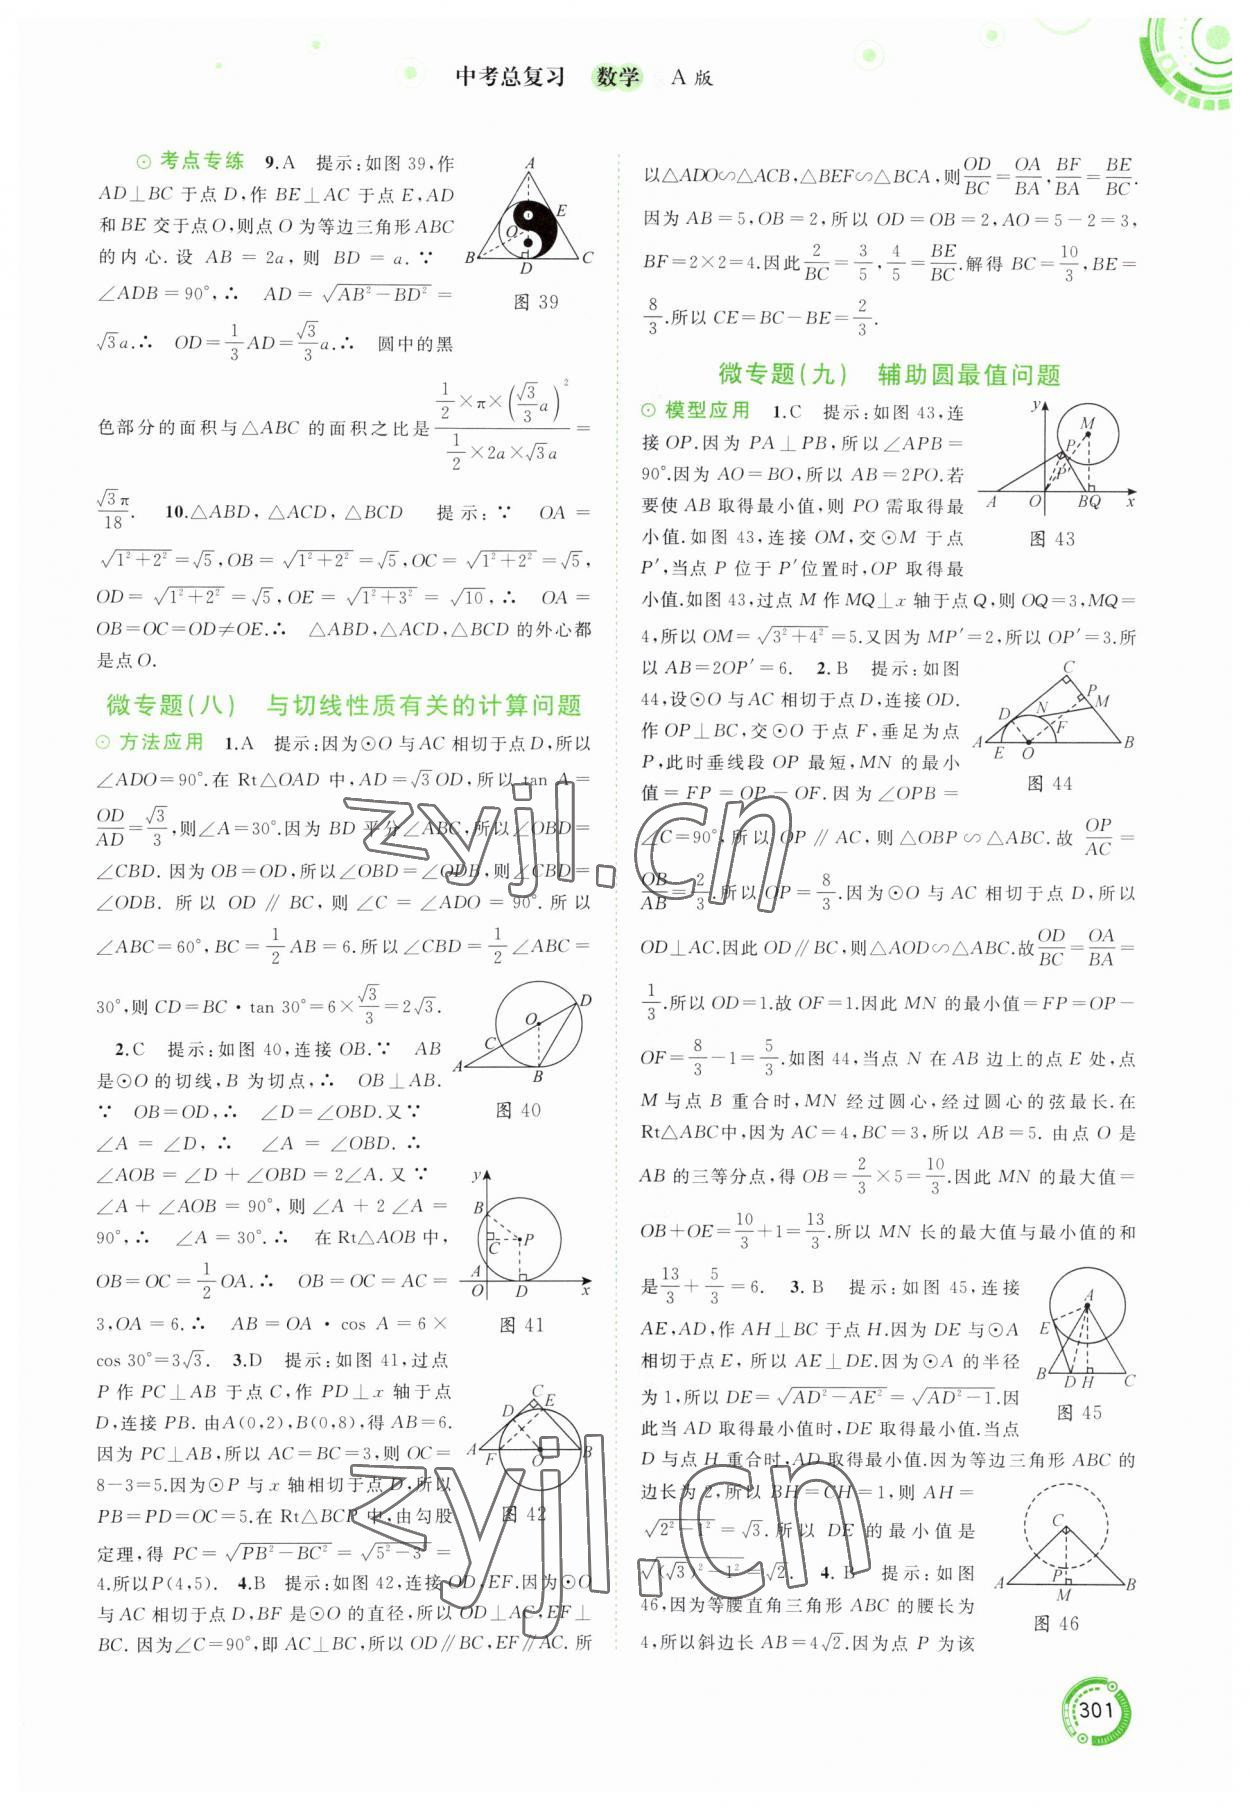 中考总复习 数学 A版
考点专练 9.A 提示:如图 39,作
AD⊥BC 于点 D,作 BE⊥AC 于点 E,AD
和 BE 交于点O,则点 O 为等边三角形 ABC
的内心.设 AB=2a,则 BD=a.∵
∠ADB=90°,∴ AD=√(AB²-BD²)=
√3a.∴ OD=1/3AD=√3/3a.∴ 圆中的黑
色部分的面积与△ABC 的面积之比是(1/2×π×(√3/3a)²)/(1/2×2a×√3a)=
√3π/18. 10.△ABD,△ACD,△BCD 提示:∵ OA=
√(1²+2²)=√5,OB=√(1²+2²)=√5,OC=√(1²+2²)=√5,
OD=√(1²+2²)=√5,OE=√(1²+3²)=√10,∴ OA=
OB=OC=OD≠OE.∴ △ABD,△ACD,△BCD 的外心都
是点O.
A
O
E
B
D
C
图 39
微专题(八) 与切线性质有关的计算问题
方法应用 1.A 提示:因为⊙O 与AC 相切于点 D,所以
∠ADO=90°.在 Rt△OAD 中,AD=√3OD,所以 tan A=
OD/AD=√3/3,则∠A=30°.因为 BD 平分∠ABC,所以∠OBD=
∠CBD.因为 OD=OB,所以∠OBD=∠ODB,则∠CBD=
∠ODB.所以 OD∥BC,则 ∠C=∠ADO=90°.所以
∠ABC=60°,BC=1/2AB=6.所以∠CBD=1/2∠ABC=
30°,则 CD=BC·tan 30°=6×√3/3=2√3.
2.C 提示:如图 40,连接 OB.∵ AB
是⊙O 的切线,B 为切点,∴ OB⊥AB.
∵ OB=OD,∴ ∠D=∠OBD.又∵
∠A=∠D,∴ ∠A=∠OBD.∴
∠AOB=∠D+∠OBD=2∠A.又∵
∠A+∠AOB=90°,则 ∠A+2∠A=
90°,∴ ∠A=30°.∴ 在Rt△AOB 中,
OB=OC=1/2OA.∴ OB=OC=AC=
3,OA=6.∴ AB=OA·cos A=6×
cos 30°=3√3. 3.D 提示:如图 41,过点
P 作 PC⊥AB 于点 C,作 PD⊥x 轴于点
D,连接 PB.由A(0,2),B(0,8),得 AB=6.
因为 PC⊥AB,所以 AC=BC=3,则 OC=
8-3=5.因为⊙P 与 x 轴相切于点 D,所以
PB=PD=OC=5.在 Rt△BCP 中,由勾股
定理,得 PC=√(PB²-BC²)=√(5²-3²)=
4.所以P(4,5). 4.B 提示:如图 42,连接 OD,EF.因为⊙O
与 AC 相切于点 D,BF 是⊙O 的直径,所以 OD⊥AC,EF⊥
BC.因为∠C=90°,即 AC⊥BC,所以 OD∥BC,EF∥AC.所
D
O
C
A
B
图 40
y
B
C
P
A
O
D
x
图 41
C
E
D
A
F
O
B
图 42
以△ADO∽△ACB,△BEF∽△BCA,则OD/BC=OA/BA,BF/BA=BE/BC.
因为 AB=5,OB=2,所以 OD=OB=2,AO=5-2=3,
BF=2×2=4.因此2/BC=3/5,4/5=BE/BC.解得 BC=10/3,BE=
8/3.所以 CE=BC-BE=2/3.
微专题(九) 辅助圆最值问题
模型应用 1.C 提示:如图 43,连
接 OP.因为 PA⊥PB,所以∠APB=
90°.因为 AO=BO,所以 AB=2PO.若
要使 AB 取得最小值,则 PO 需取得最
小值.如图 43,连接 OM,交⊙M 于点
P′,当点 P 位于 P′位置时,OP 取得最
小值.如图 43,过点 M 作 MQ⊥x 轴于点 Q,则 OQ=3,MQ=
4,所以 OM=√(3²+4²)=5.又因为 MP′=2,所以 OP′=3.所
以 AB=2OP′=6. 2.B 提示:如图
44,设⊙O 与 AC 相切于点 D,连接 OD.
作 OP⊥BC,交⊙O 于点 F,垂足为点
P,此时垂线段 OP 最短,MN 的最小
值=FP=OP-OF.因为∠OPB=
∠C=90°,所以 OP∥AC,则△OBP∽△ABC.故 OP/AC=
OB/AB=2/3.所以OP=8/3.因为⊙O 与 AC 相切于点 D,所以
OD⊥AC.因此 OD∥BC,则△AOD∽△ABC.故OD/BC=OA/BA=
1/3.所以 OD=1.故 OF=1.因此 MN 的最小值=FP=OP-
OF=8/3-1=5/3.如图 44,当点 N 在 AB 边上的点 E 处,点
M 与点 B 重合时,MN 经过圆心,经过圆心的弦最长.在
Rt△ABC中,因为 AC=4,BC=3,所以 AB=5.由点 O 是
AB 的三等分点,得 OB=2/3×5=10/3.因此 MN 的最大值=
OB+OE=10/3+1=13/3.所以 MN 长的最大值与最小值的和
是13/3+5/3=6. 3.B 提示:如图 45,连接
AE,AD,作 AH⊥BC 于点 H.因为 DE 与⊙A
相切于点 E,所以 AE⊥DE.因为⊙A 的半径
为 1,所以 DE=√(AD²-AE²)=√(AD²-1).因
此当 AD 取得最小值时,DE 取得最小值.当点
D 与点 H 重合时,AD 取得最小值.因为等边三角形 ABC 的
边长为 2,所以 BH=CH=1,则 AH=
√(2²-1²)=√3.所以 DE 的最小值是
√((√3)²-1²)=√2. 4.B 提示:如图
46,因为等腰直角三角形 ABC 的腰长为
4,所以斜边长 AB=4√2.因为点 P 为该
y
M
P
P′
A
O
BQ
x
图 43
C
P
M
D
N
F
A
E
O
B
图 44
A
E
B
D H
C
图 45
C
P
A
M
B
图 46
zyjl.cn
zyjl.cn
301